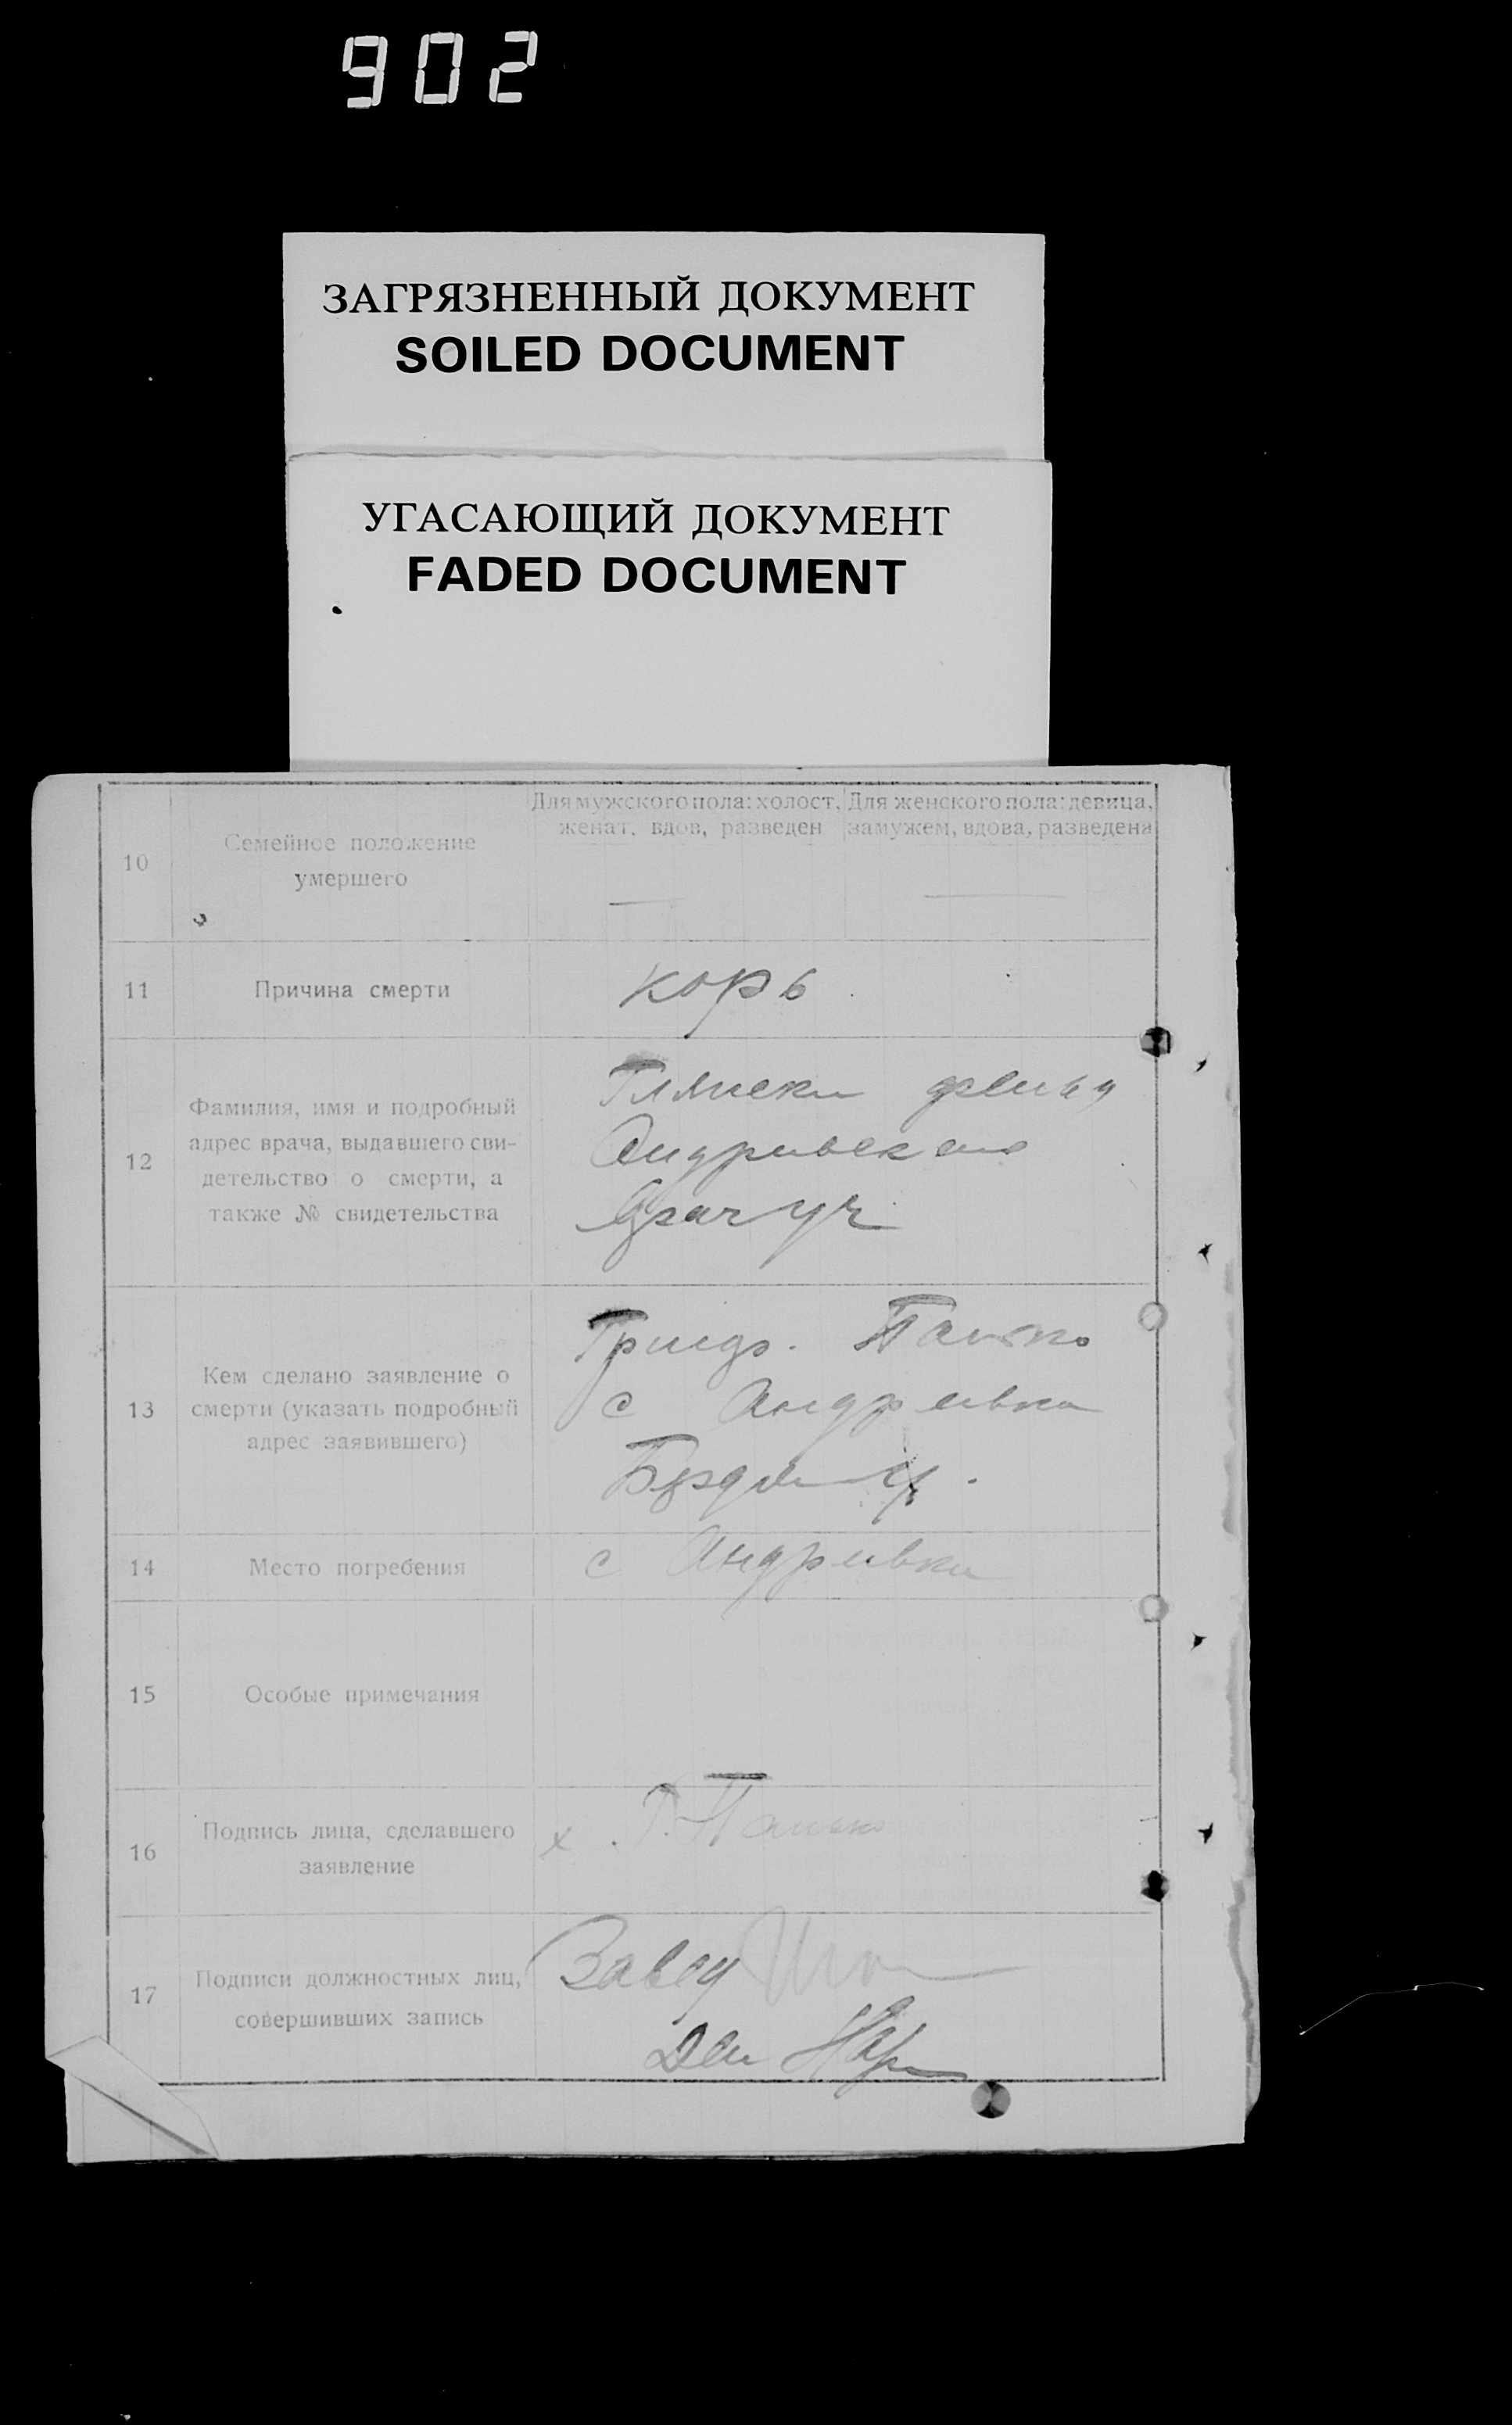 902
ЗАГРЯЗНЕННЫЙ ДОКУМЕНТ
SOILED DOCUMENT
УГАСАЮЩИЙ ДОКУМЕНТ
FADED DOCUMENT
10
Семейное положение
умершего
Для мужского пола: холост,
женат, вдов, разведен
—
Для женского пола: девица,
замужем, вдова, разведена
—
11
Причина смерти
корь
12
Фамилия, имя и подробный
адрес врача, выдавшего сви-
детельство о смерти, а
также № свидетельства
13
Кем сделано заявление о
смерти (указать подробный
адрес заявившего)
с Андреивка
14
Место погребения
с Андреивка
15
Особые примечания
16
Подпись лица, сделавшего
заявление
х
17
Подписи должностных лиц,
совершивших запись
Завед